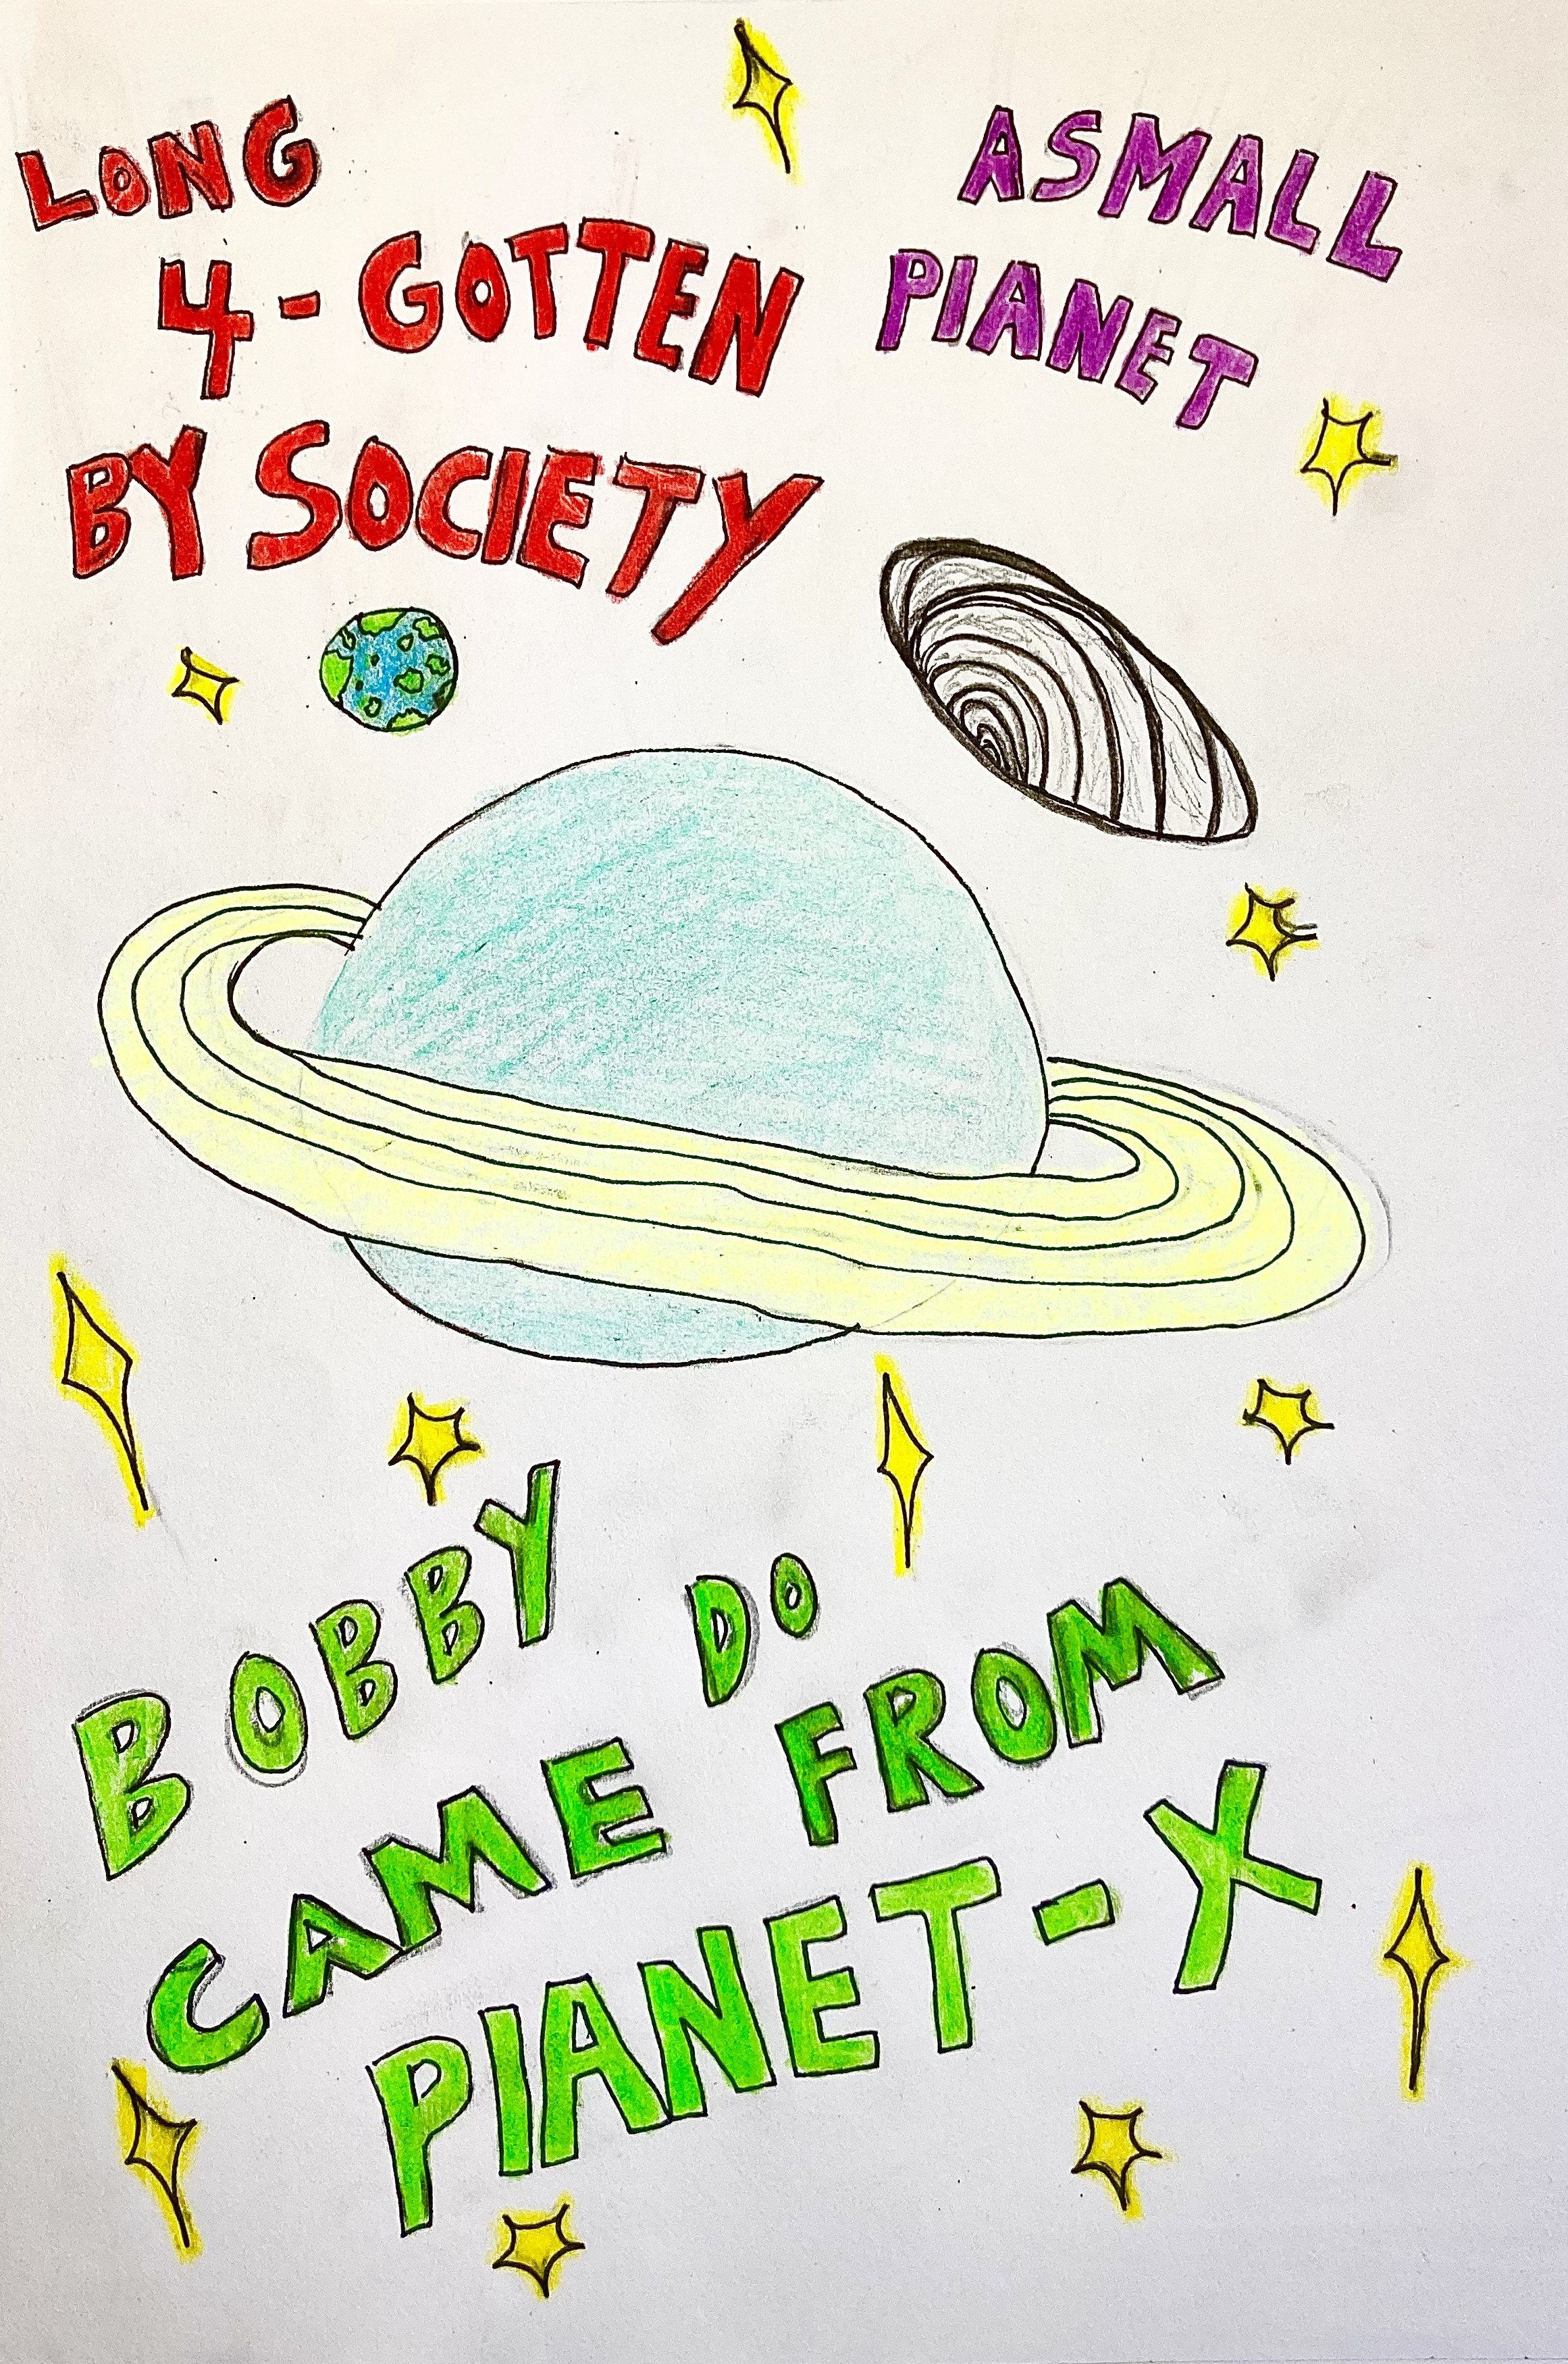 LONG
4-GOTTEN
BY SOCIETY
ASMALL
PIANET
BOBBY DO
CAME FROM
PIANET-X